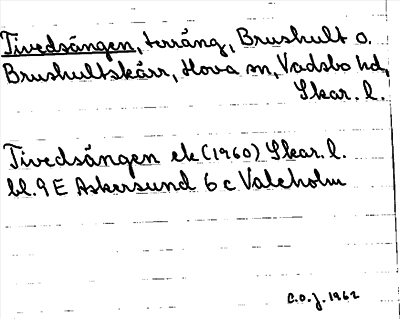 Tivedsängen, terräng, Brushult o.
Brushultskärr, Hova sn, Vadsbo hd,
Skar. l.
Tivedsängen ek (1960) Skar. l.
bl. 9 E Askersund 6 c Valeholm
C.O.J. 1962